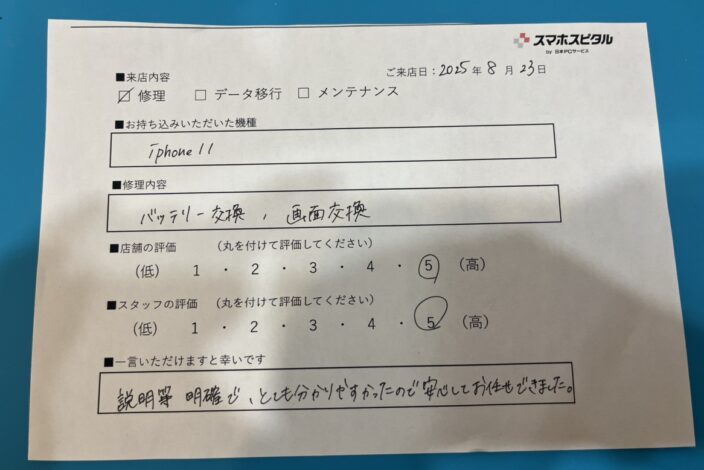 スマホスピタル
by 日本PCサービス
ご来店日：2025年8月23日
■来店内容
☑ 修理 □ データ移行 □ メンテナンス
■お持ち込みいただいた機種
iphone11
■修理内容
バッテリー交換, 画面交換
■店舗の評価 （丸を付けて評価してください）
（低） 1 ・ 2 ・ 3 ・ 4 ・ 5 （高）
■スタッフの評価 （丸を付けて評価してください）
（低） 1 ・ 2 ・ 3 ・ 4 ・ 5 （高）
■一言いただけますと幸いです
説明等 明確で、とても分かりやすかったので安心してお任せできました。